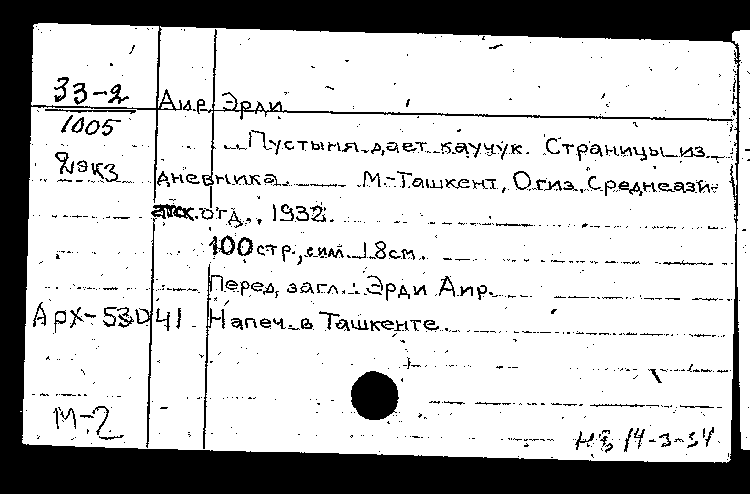 33-2
1005
2 экз
Аир, Эрди
Пустыня дает каучук. Страницы из
дневника. М.-Ташкент, Огиз, Среднеази-
атск. отд., 1932.
100 стр., 18 см.
Перед загл.: Эрди Аир.
Арх-53041 Напеч. в Ташкенте.
М-2
14-3-34